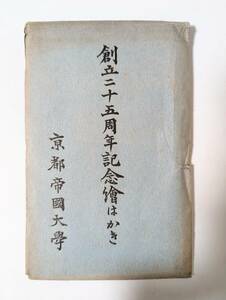 創立二十五周年記念繪はかき
京都帝國大學